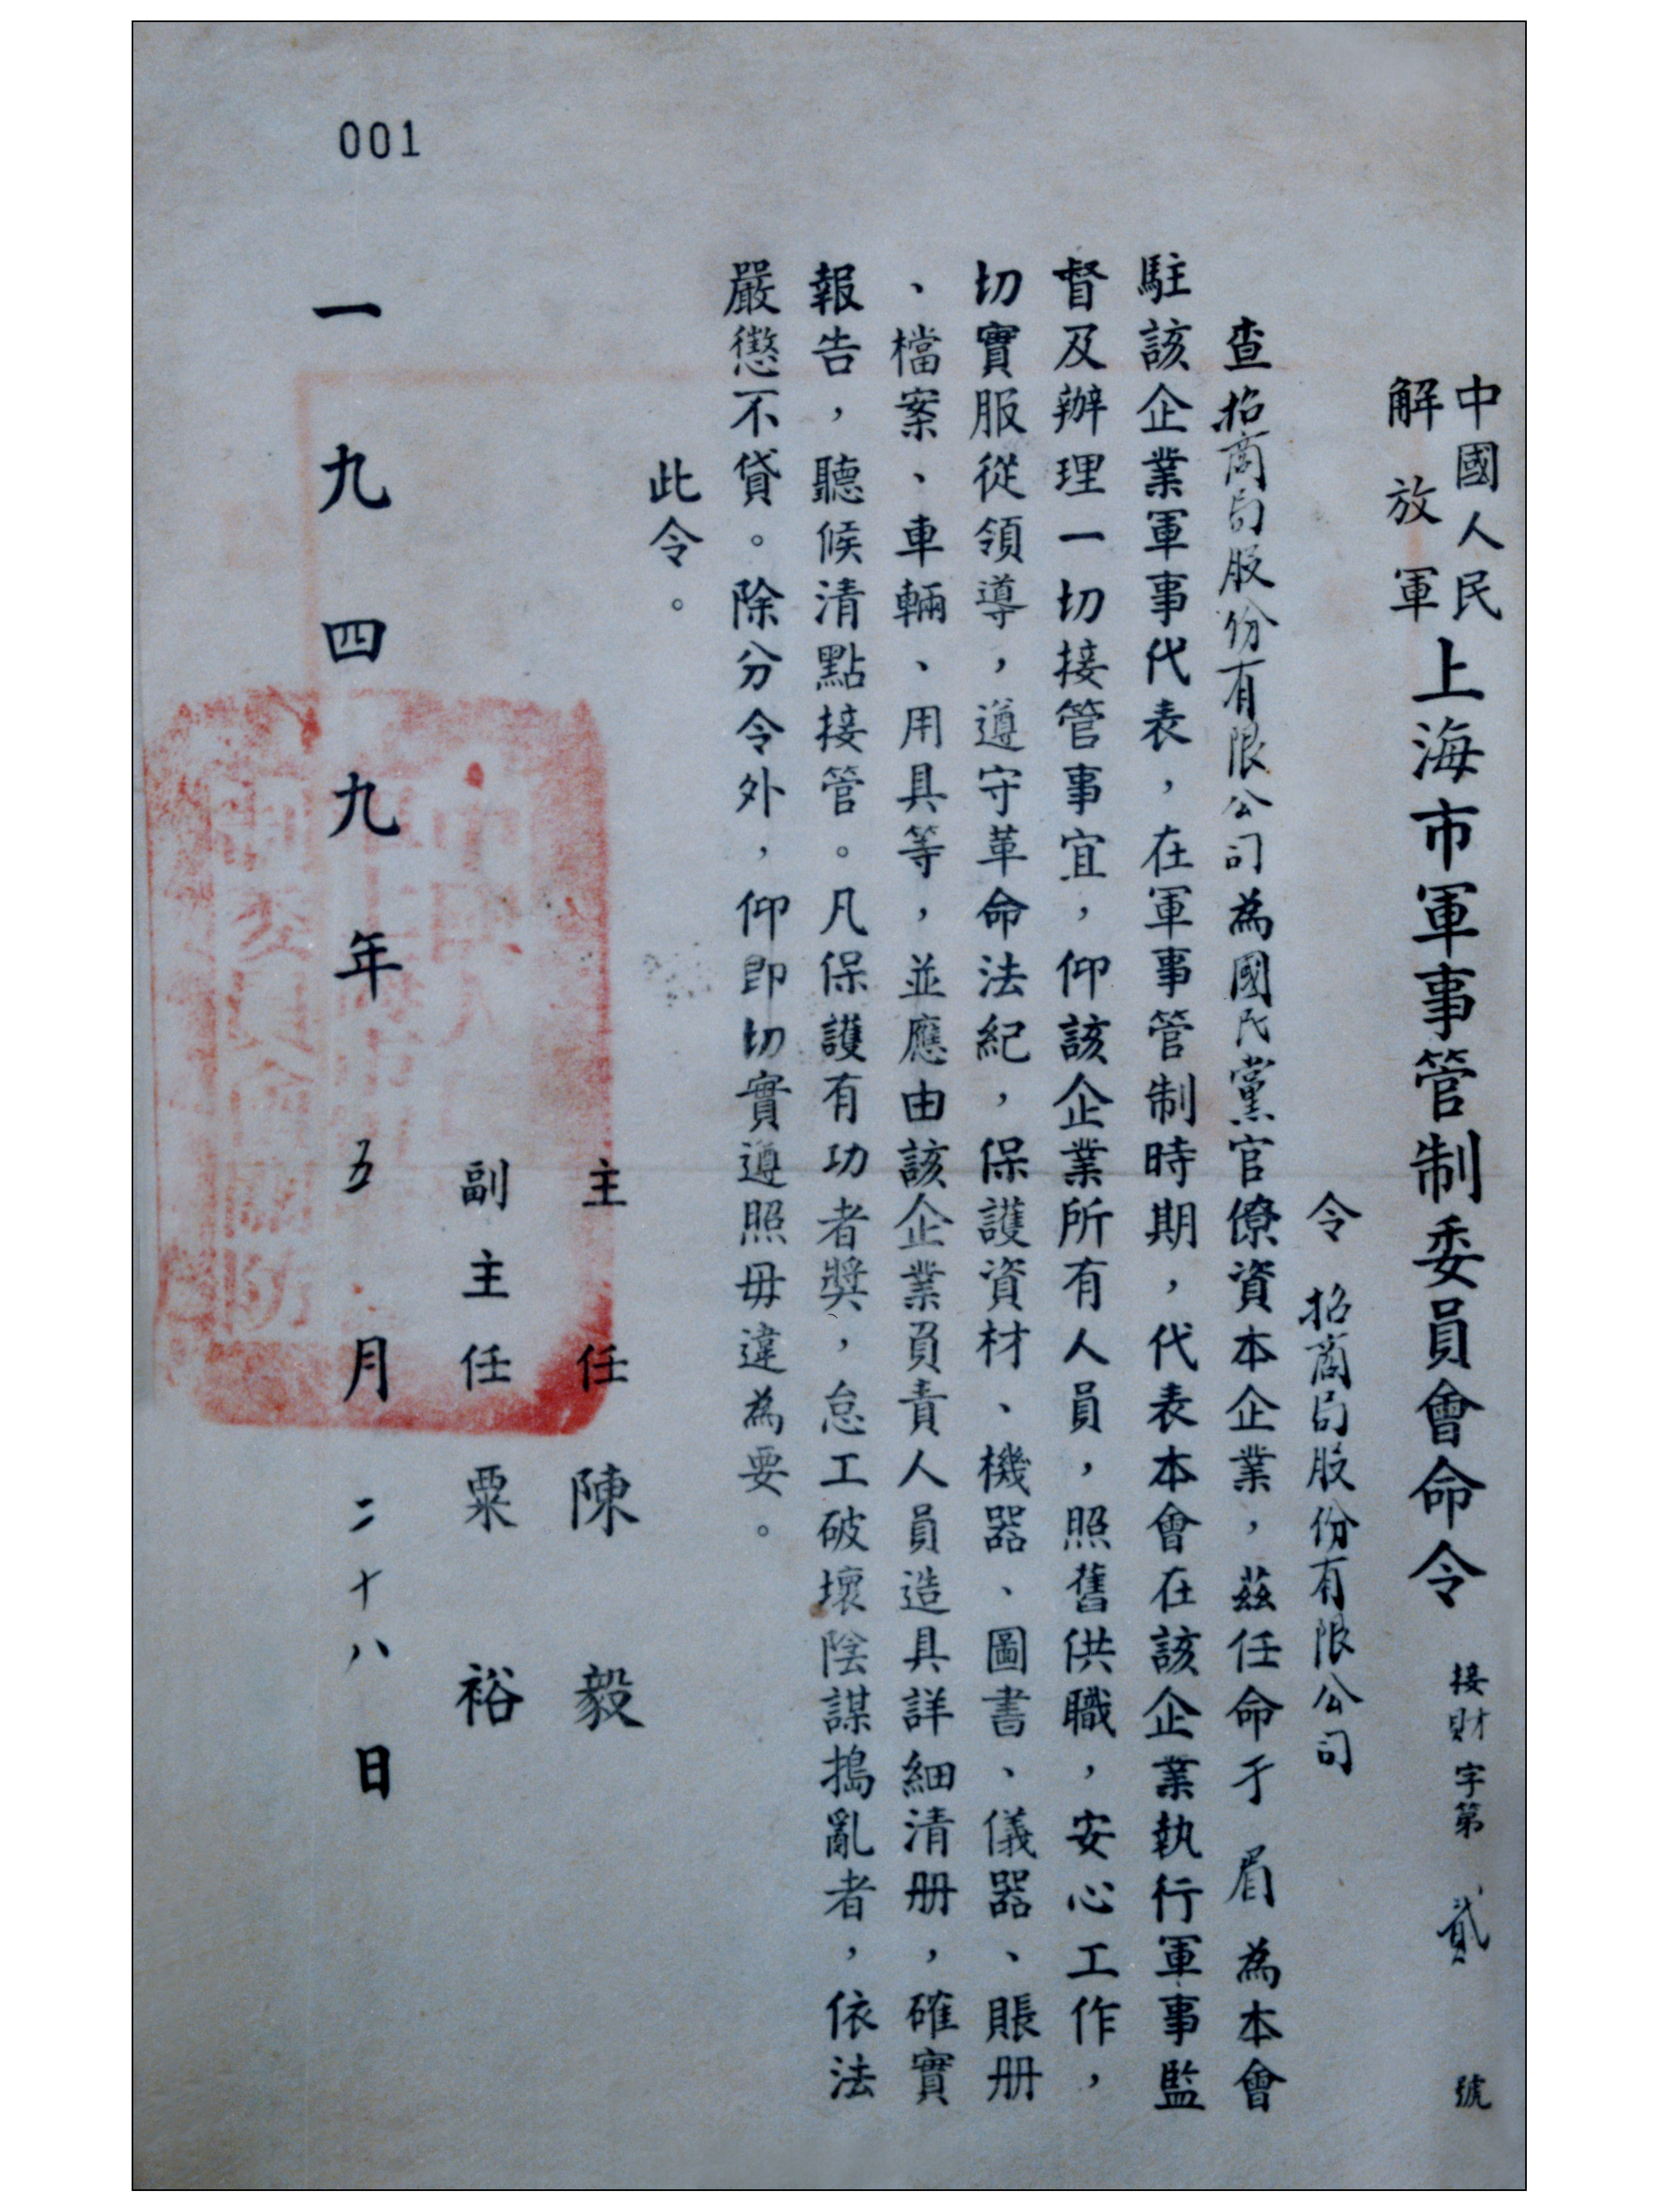 中國人民
解放軍
上海市軍事管制委員會命令 接財字第貳號
令 招商局股份有限公司
查招商局股份有限公司為國民黨官僚資本企業，茲任命于眉為本會
駐該企業軍事代表，在軍事管制時期，代表本會在該企業執行軍事監
督及辦理一切接管事宜，仰該企業所有人員，照舊供職，安心工作，
切實服從領導，遵守革命法紀，保護資材、機器、圖書、儀器、賬册
、檔案、車輛、用具等，並應由該企業負責人員造具詳細清册，確實
報告，聽候清點接管。凡保護有功者獎，怠工破壞陰謀搗亂者，依法
嚴懲不貸。除分令外，仰即切實遵照毋違為要。
此令。
主任 陳毅
副主任 粟裕
一九四九年五月二十八日
001